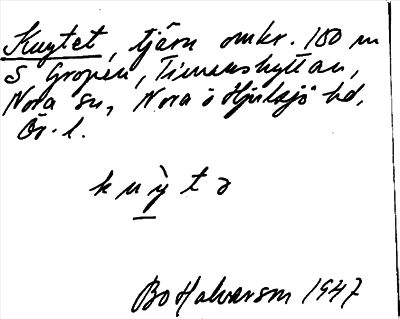 Knytet, tjärn omkr. 100 m
S Gropen, Timanshyttan,
Nora sn, Nora o Hjulsjö hd,
Ör. l.
k n ỳ t ə
Bo Halvarson 1947